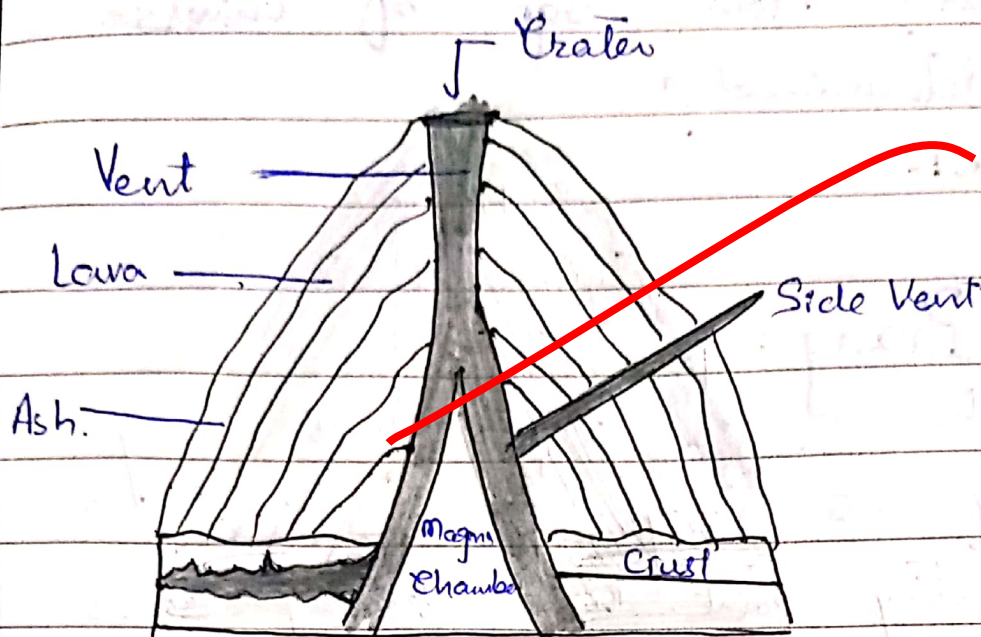 Crater
Vent
Lava
Side Vent
Ash.
Magma
Chamber
Crust